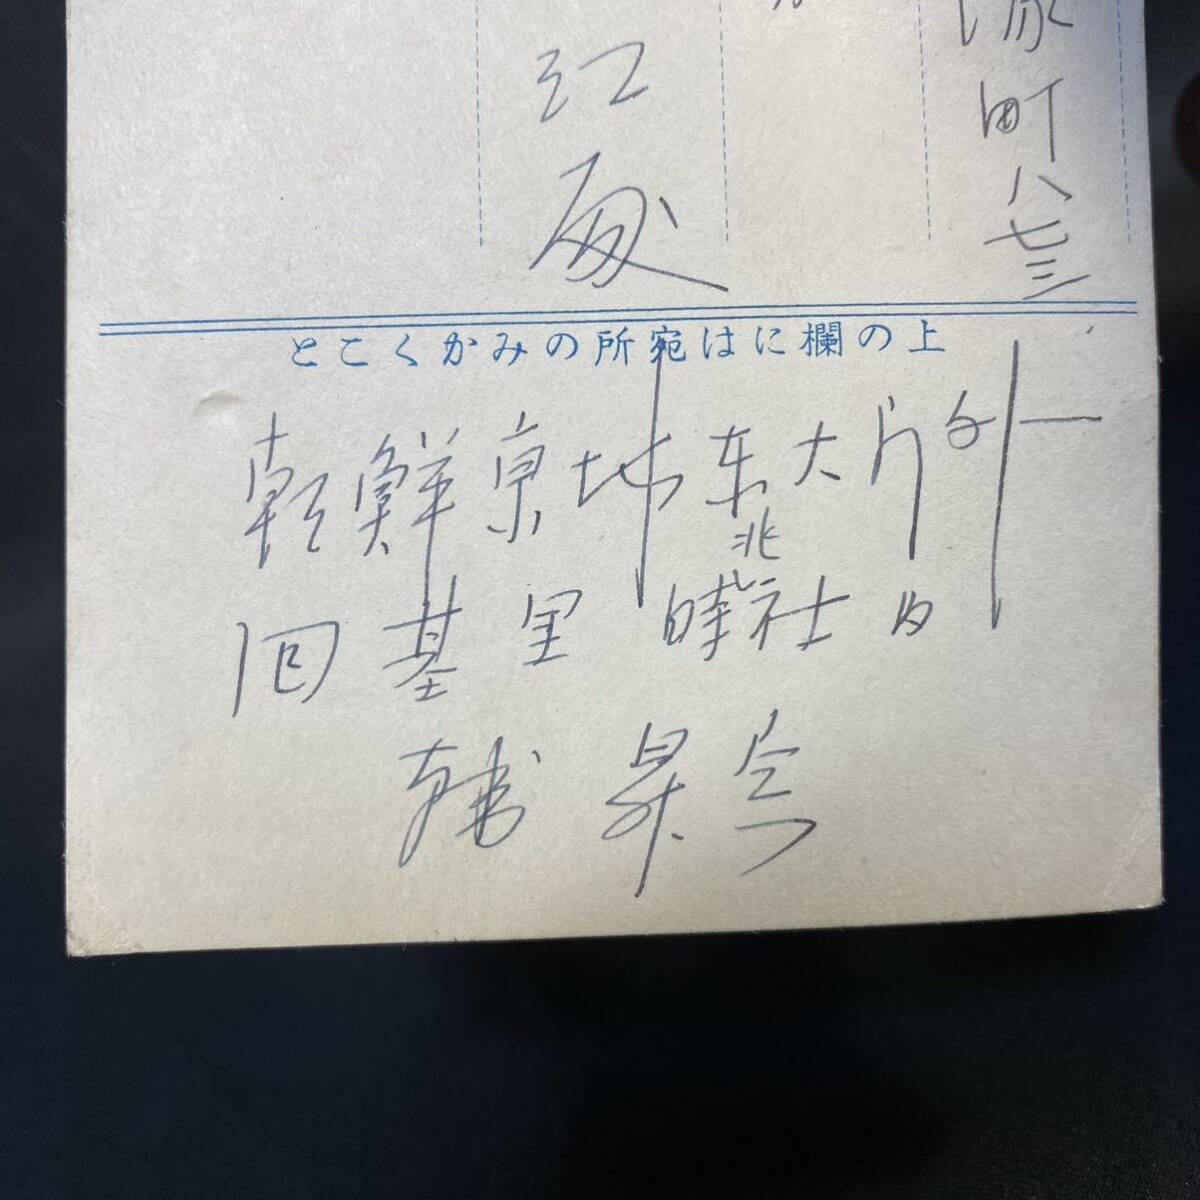 塚町八七三
江
殿
上の欄には宛所のみかくこと
朝鮮京城東大門外
回基里 時兆社内
韓昇